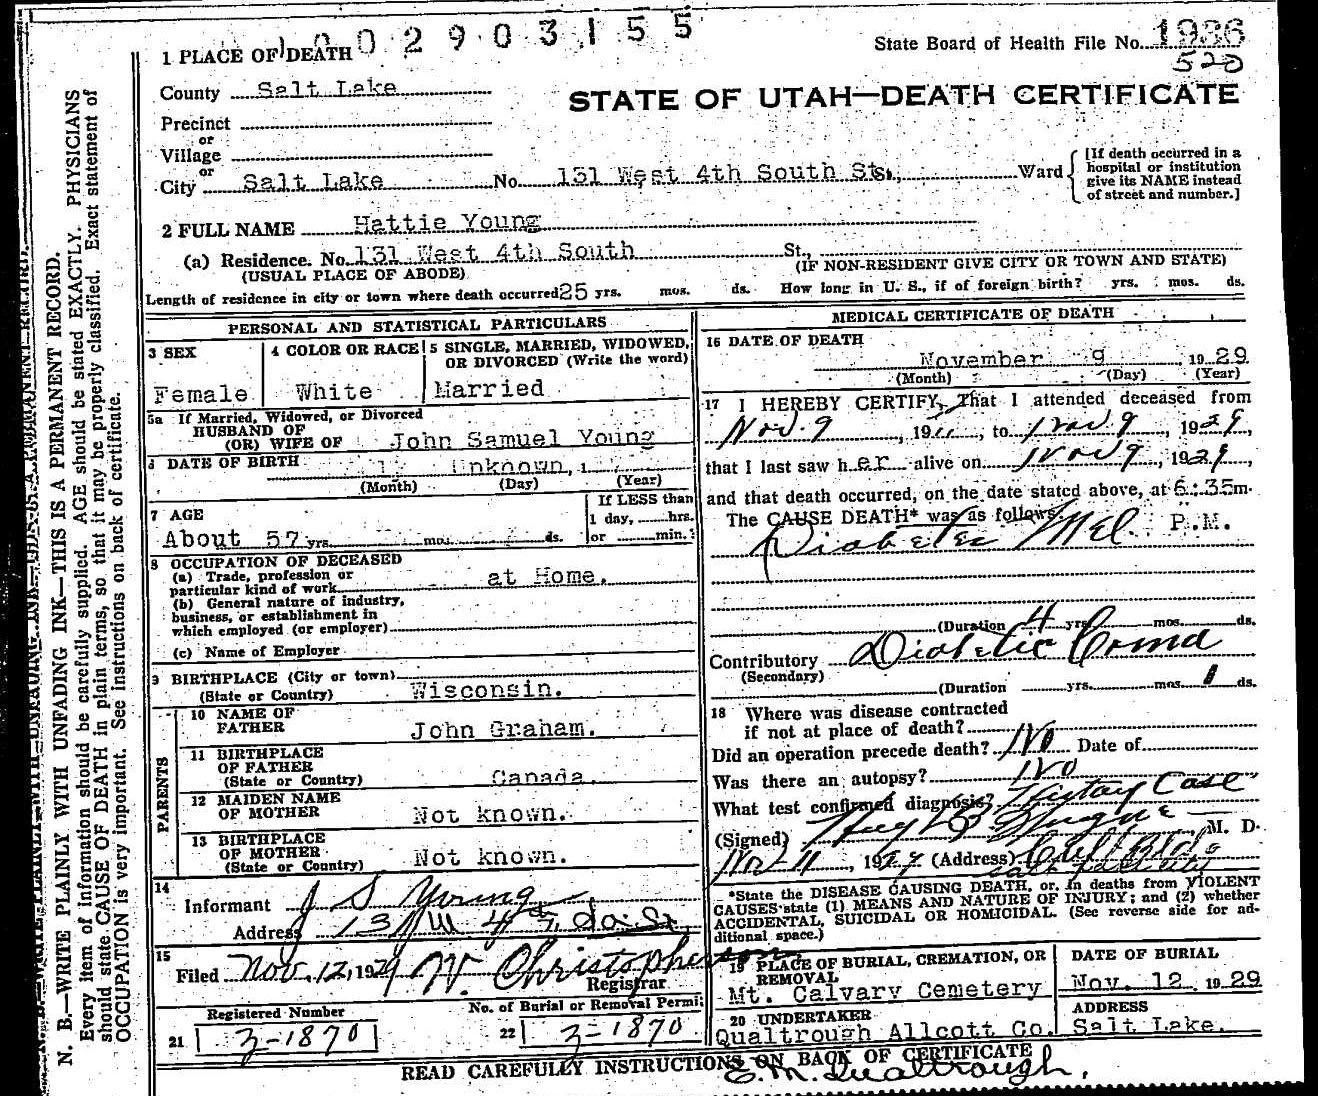 1002903155
State Board of Health File No. 1936
520
1 PLACE OF DEATH
County Salt Lake
STATE OF UTAH—DEATH CERTIFICATE
Precinct
or
Village
or
City Salt Lake No. 131 West 4th South St., Ward
[If death occurred in a hospital or institution give its NAME instead of street and number.]
2 FULL NAME Hattie Young
(a) Residence. No. 131 West 4th South St.,
(USUAL PLACE OF ABODE) (IF NON-RESIDENT GIVE CITY OR TOWN AND STATE)
Length of residence in city or town where death occurred 25 yrs. mos. ds. How long in U. S., if of foreign birth? yrs. mos. ds.
PERSONAL AND STATISTICAL PARTICULARS
3 SEX
Female
4 COLOR OR RACE
White
5 SINGLE, MARRIED, WIDOWED, OR DIVORCED (Write the word)
Married
5a If Married, Widowed, or Divorced
HUSBAND OF
(OR) WIFE OF John Samuel Young
DATE OF BIRTH Unknown, 1
(Month) (Day) (Year)
7 AGE
About 57 yrs. mos. ds.
If LESS than
1 day, hrs.
or min.?
8 OCCUPATION OF DECEASED
(a) Trade, profession or
particular kind of work at Home.
(b) General nature of industry,
business, or establishment in
which employed (or employer)
(c) Name of Employer
9 BIRTHPLACE (City or town)
(State or Country) Wisconsin.
PARENTS
10 NAME OF
FATHER John Graham.
11 BIRTHPLACE
OF FATHER
(State or Country) Canada.
12 MAIDEN NAME
OF MOTHER Not known.
13 BIRTHPLACE
OF MOTHER
(State or Country) Not known.
14
Informant J S Young
Address 131 W 4th So. St.
15
Filed Nov. 12, 1929 W. Christopherson
Registrar
Registered Number
21 3-1870
No. of Burial or Removal Permit
22 3-1870
MEDICAL CERTIFICATE OF DEATH
16 DATE OF DEATH
November 9 1929
(Month) (Day) (Year)
17 I HEREBY CERTIFY, That I attended deceased from
Nov. 9, 19 , to Nov 9, 1929,
that I last saw her alive on Nov 9, 1929,
and that death occurred, on the date stated above, at 6:35 m.
The CAUSE DEATH* was as follows: P.M.
Diabetes Mel
(Duration 4 yrs. mos. ds.
Contributory Diabetic Coma
(Secondary)
(Duration yrs. mos. 1 ds.
18 Where was disease contracted
if not at place of death?
Did an operation precede death? No Date of
Was there an autopsy? No
What test confirmed diagnosis? History Case
(Signed) M. D.
Nov 11, 1929 (Address)
*State the DISEASE CAUSING DEATH, or, in deaths from VIOLENT
CAUSES state (1) MEANS AND NATURE OF INJURY; and (2) whether
ACCIDENTAL, SUICIDAL OR HOMICIDAL. (See reverse side for additional space.)
19 PLACE OF BURIAL, CREMATION, OR REMOVAL
Mt. Calvary Cemetery
DATE OF BURIAL
Nov. 12, 1929
20 UNDERTAKER
Qualtrough Allcott Co.
ADDRESS
Salt Lake.
READ CAREFULLY INSTRUCTIONS ON BACK OF CERTIFICATE
E. M. Qualtrough.
N. B.—WRITE PLAINLY WITH UNFADING INK—THIS IS A PERMANENT RECORD.
Every item of information should be carefully supplied. AGE should be stated EXACTLY. PHYSICIANS
should state CAUSE OF DEATH in plain terms, so that it may be properly classified. Exact statement of
OCCUPATION is very important. See instructions on back of certificate.